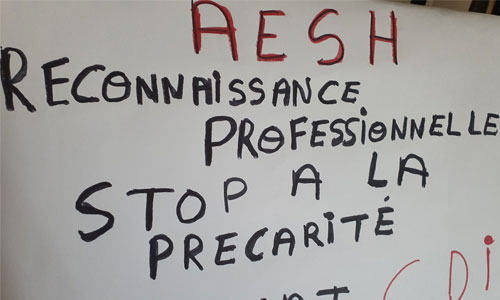 AESH
RECONNAiSSANCE
PROFESSIONNELLE
STOP A LA
PRECARITÉ
CDi